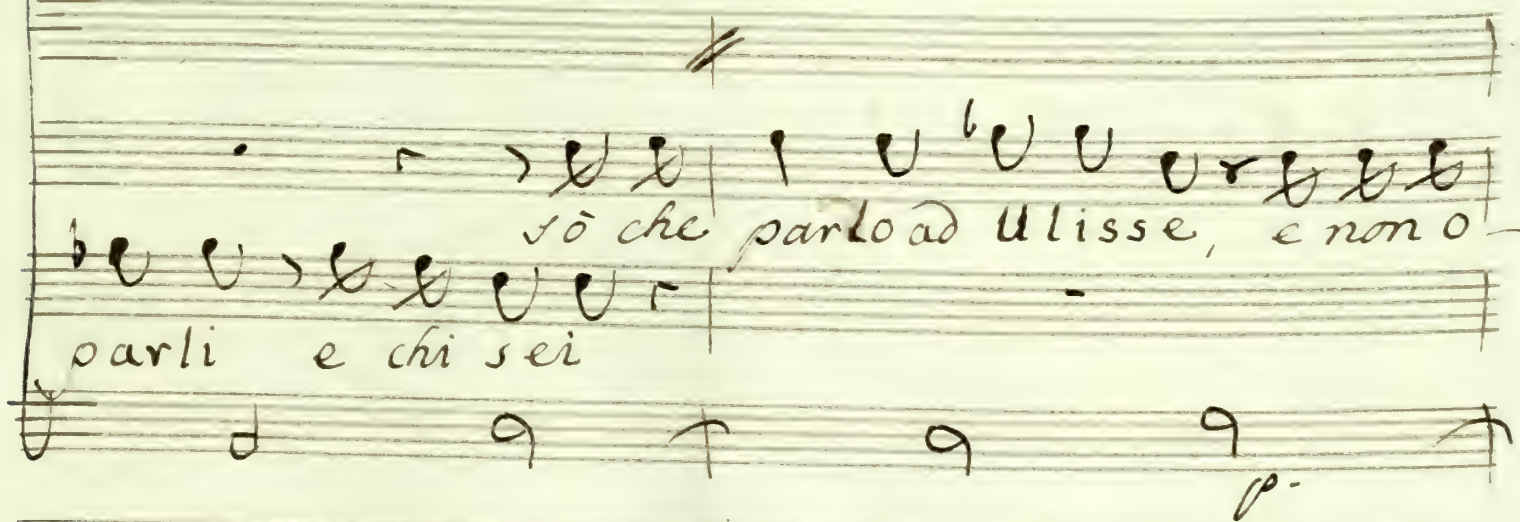 sò che parlo ad Ulisse, e non o-
parli e chi sei
p.